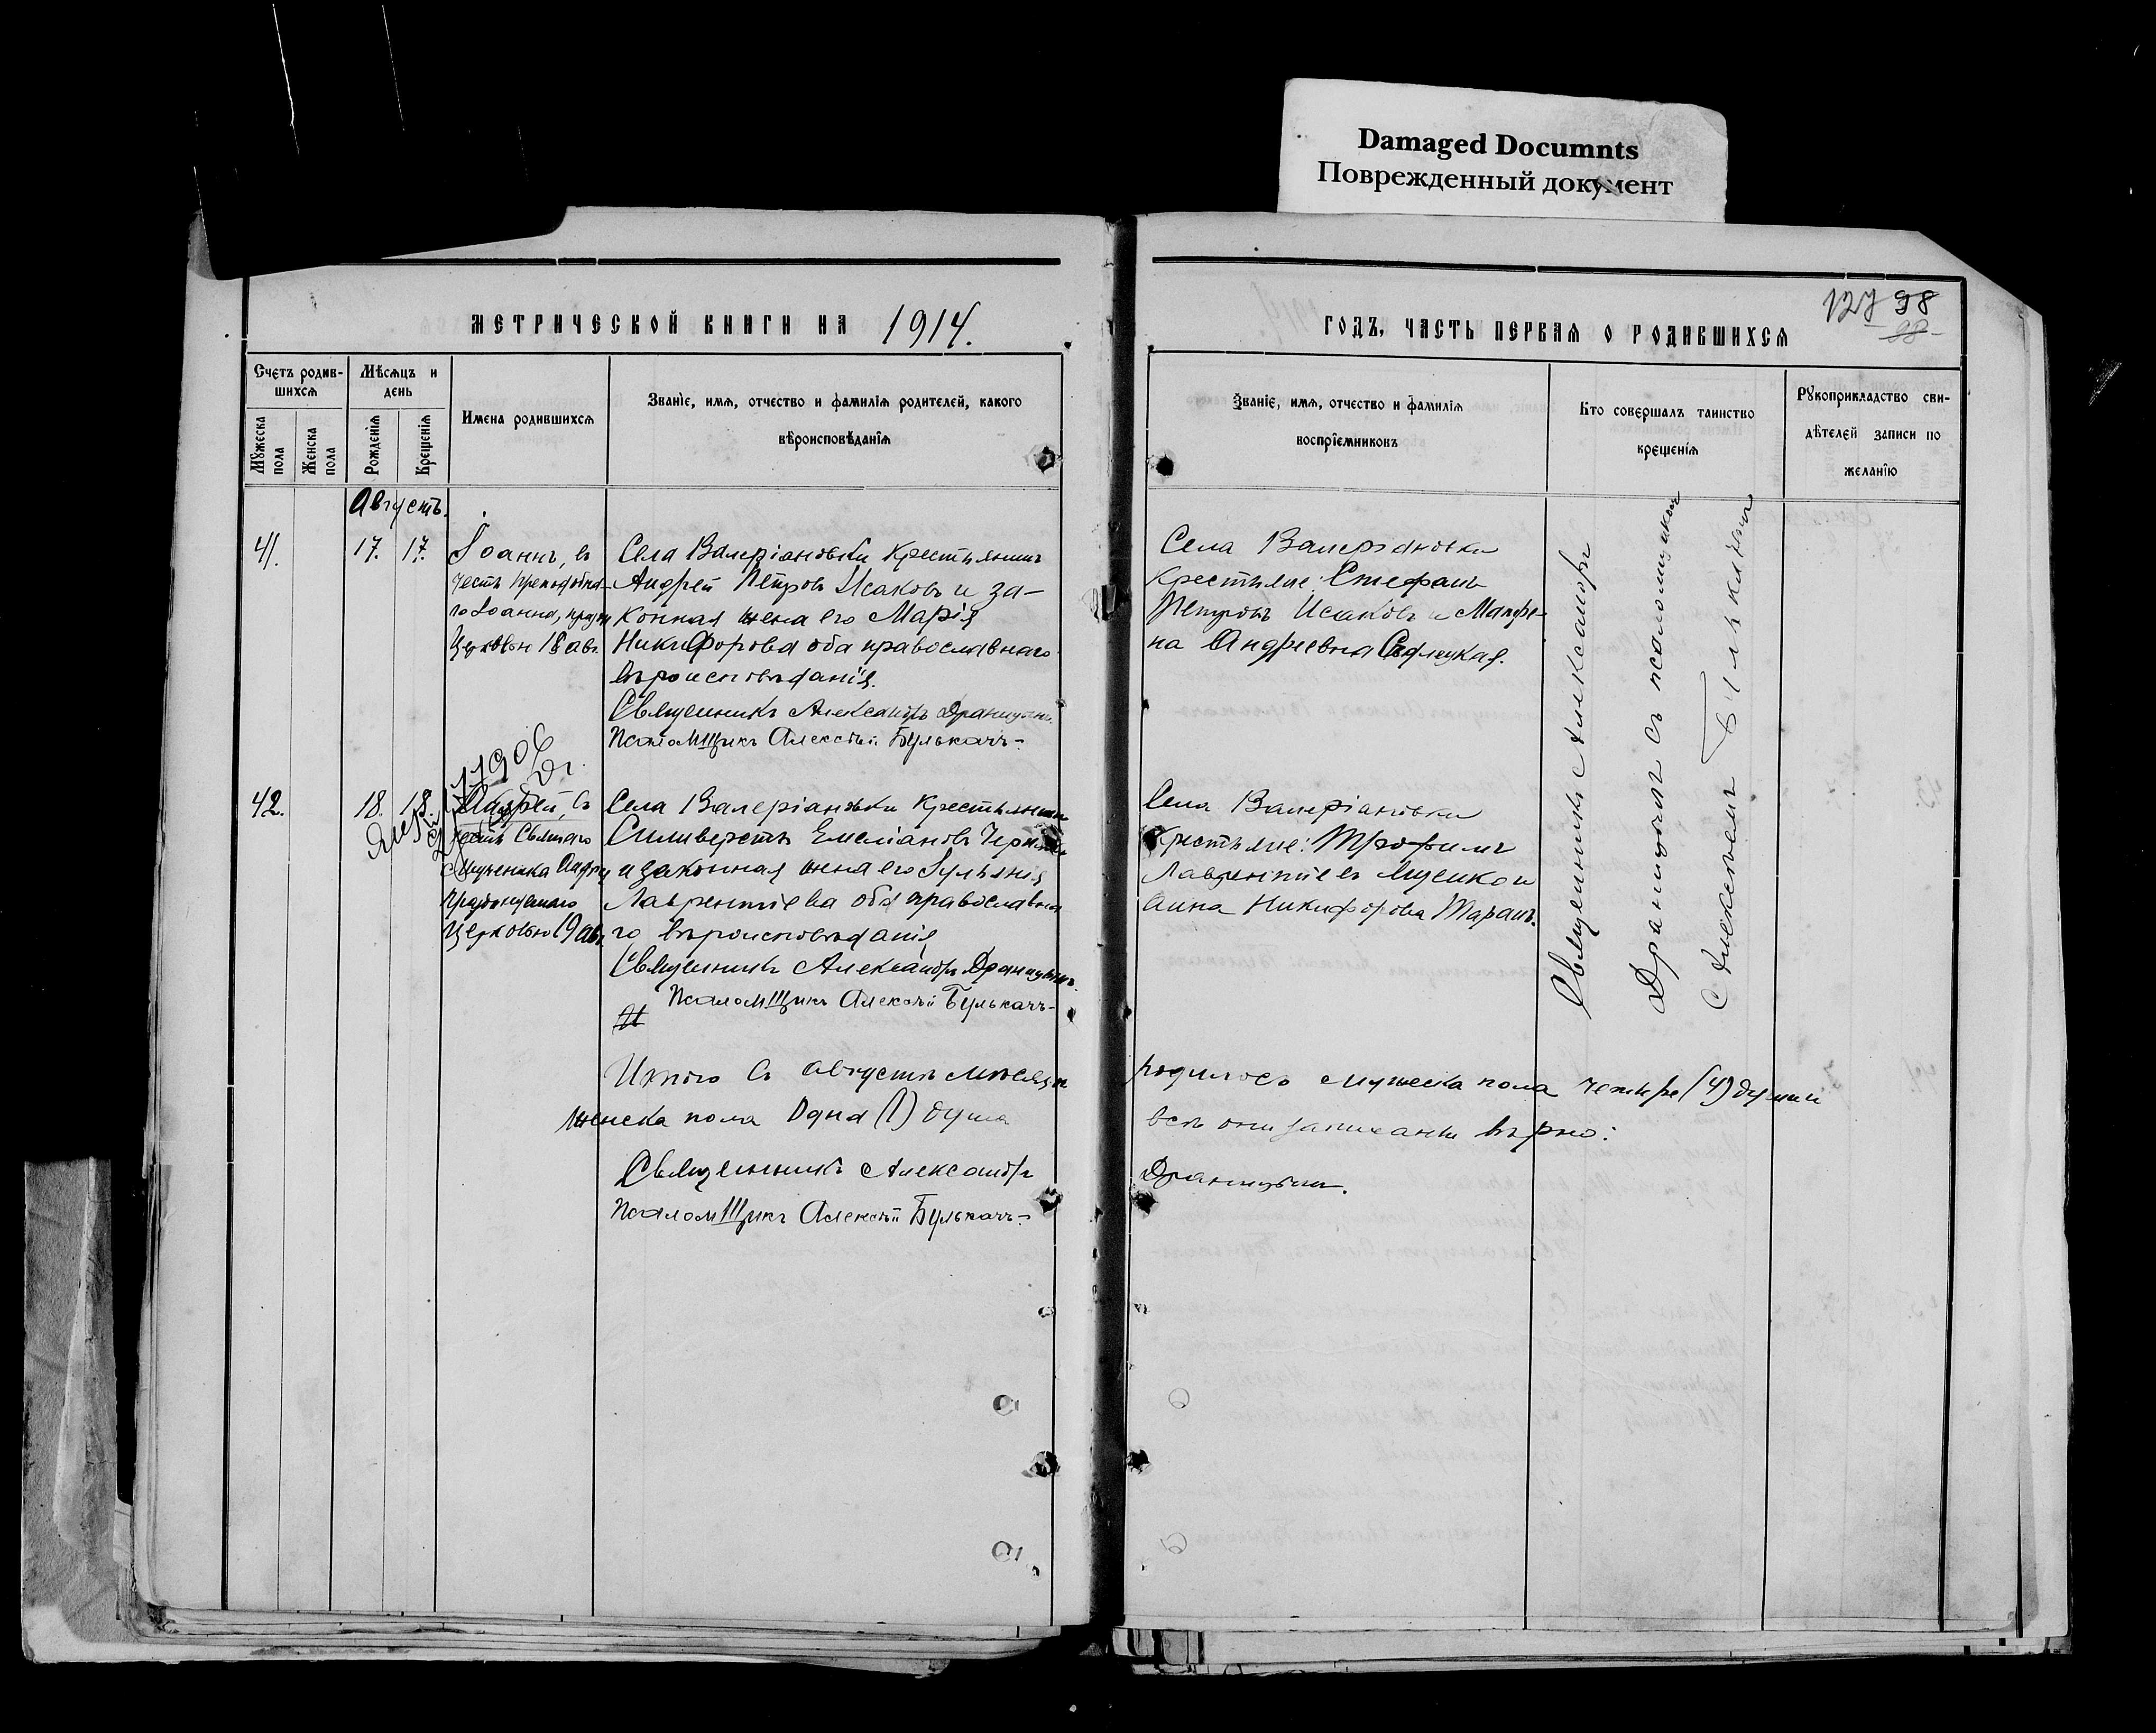 Damaged Documnts
Поврежденный документ
МЕТРИЧЕСКОЙ КНИГИ НА 1914.
Счетъ родив-
шихся
Мѣсяцъ и
день
Мужеска
пола
Женска
пола
Рожденія
Крещенія
Имена родившихся
Званіе, имя, отчество и фамилія родителей, какого
вѣроисповѣданія
Августъ.
41. 17. 17.
Іоаннъ, въ
честь преподобна-
го Іоанна,
Церковью 18 авг.
Села Валеріановки крестьянинъ
Андрей Петровъ Исаковъ и за-
конная жена его Марія
Никифорова оба православнаго
вѣроисповѣданія.
Священникъ Александръ Драницынъ.
Псаломщикъ Алексѣй Булькачъ-
42. 18. 18.
Андрей, въ
честь Святаго
Мученика
празднуемаго
Церковью 19 авг.
Села Валеріановки крестьянинъ
Силиверстъ Емеліановъ
и законная жена его Іуліанія
Лаврентіева оба православна
го вѣроисповѣданія
Священникъ Александръ Драницынъ.
Псаломщикъ Алексѣй Булькачъ-
Итого въ августѣ мѣсяцѣ
женска пола одна (1) душа
Священникъ Александръ
Псаломщикъ Алексѣй Булькачъ-
127 98
98
ГОДЪ, ЧАСТЬ ПЕРВАЯ О РОДИВШИХСЯ
Званіе, имя, отчество и фамилія
воспріємниковъ
Кто совершалъ таинство
крещенія
Рукоприкладство сви-
дѣтелей записи по
желанію
Села Валеріановки
крестьяне: Стефанъ
Петровъ Исаковъ и Матре-
на Андреевна
Села Валеріановки
крестьяне: Трофимъ
Лаврентіевъ и
Анна Никифорова Таранъ.
Священникъ Александръ
Драницынъ съ псаломщикомъ
Алексѣемъ Булькачемъ
родилось мужеска пола четыре (4) души и
всѣ они записаны вѣрно:
Драницынъ.